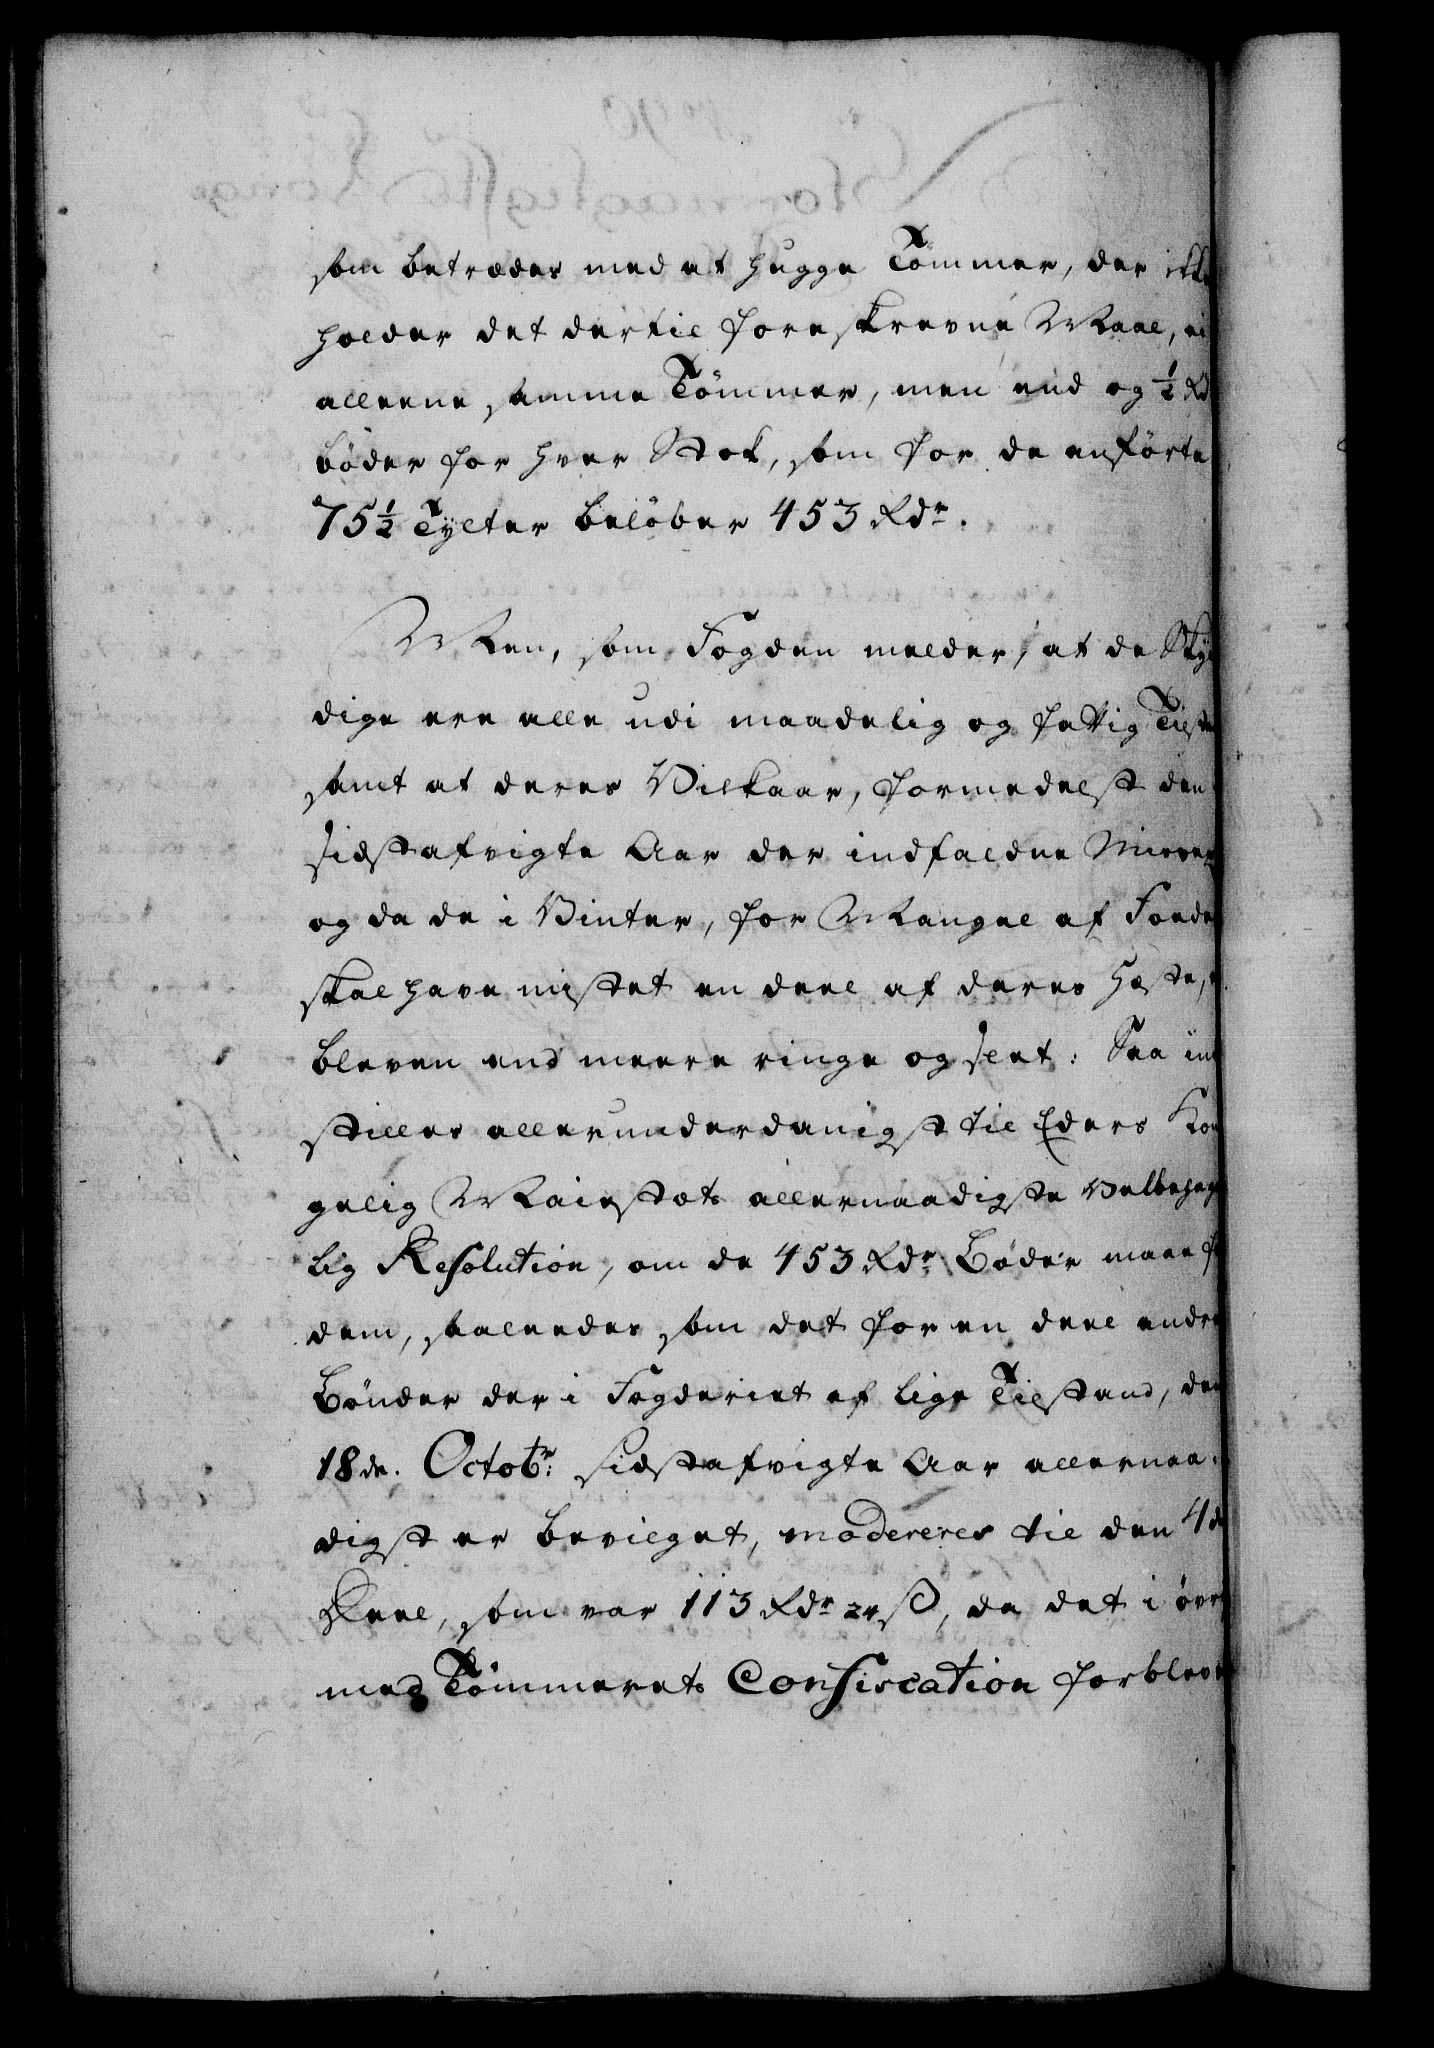 som betrædes med at hugge Tømmer, der ikke
holder det dertil foreskrevne Maal, ei
alleene samme Tømmer, men end og ½ Rd
bøder for hver Stok, som for de anførte
75½ Tylter beløber 453 Rdr.
Men, som Fogden melder, at de Sky
dige ere alle udi maadelig og fattig Tilst
samt at deres Vilkaar, formedelst den
sidstafvigte Aar der indfaldne Misvæ
og da de i Vinter, for Mangel af Foeder
skal have mistet en deel af deres Heste,
bleven end meere ringe og slet: Saa ind
stilles allerunderdanigst til Eders Kon
gelig Majestæts allernaadigste Velbehage
lig Resolution, om de 453 Rdr Bøder maae f
dem, saaledes som det for en deel andre
Bønder der i Fogderiet af lige Tilstand, den
18de. Octobr: sidstafvigte Aar allernaa-
digst er bevilget, modereres til den 4de
Deel, som var 113 Rdr 24 ß, da det i øvr
med Tømmerets Confiscation forblev